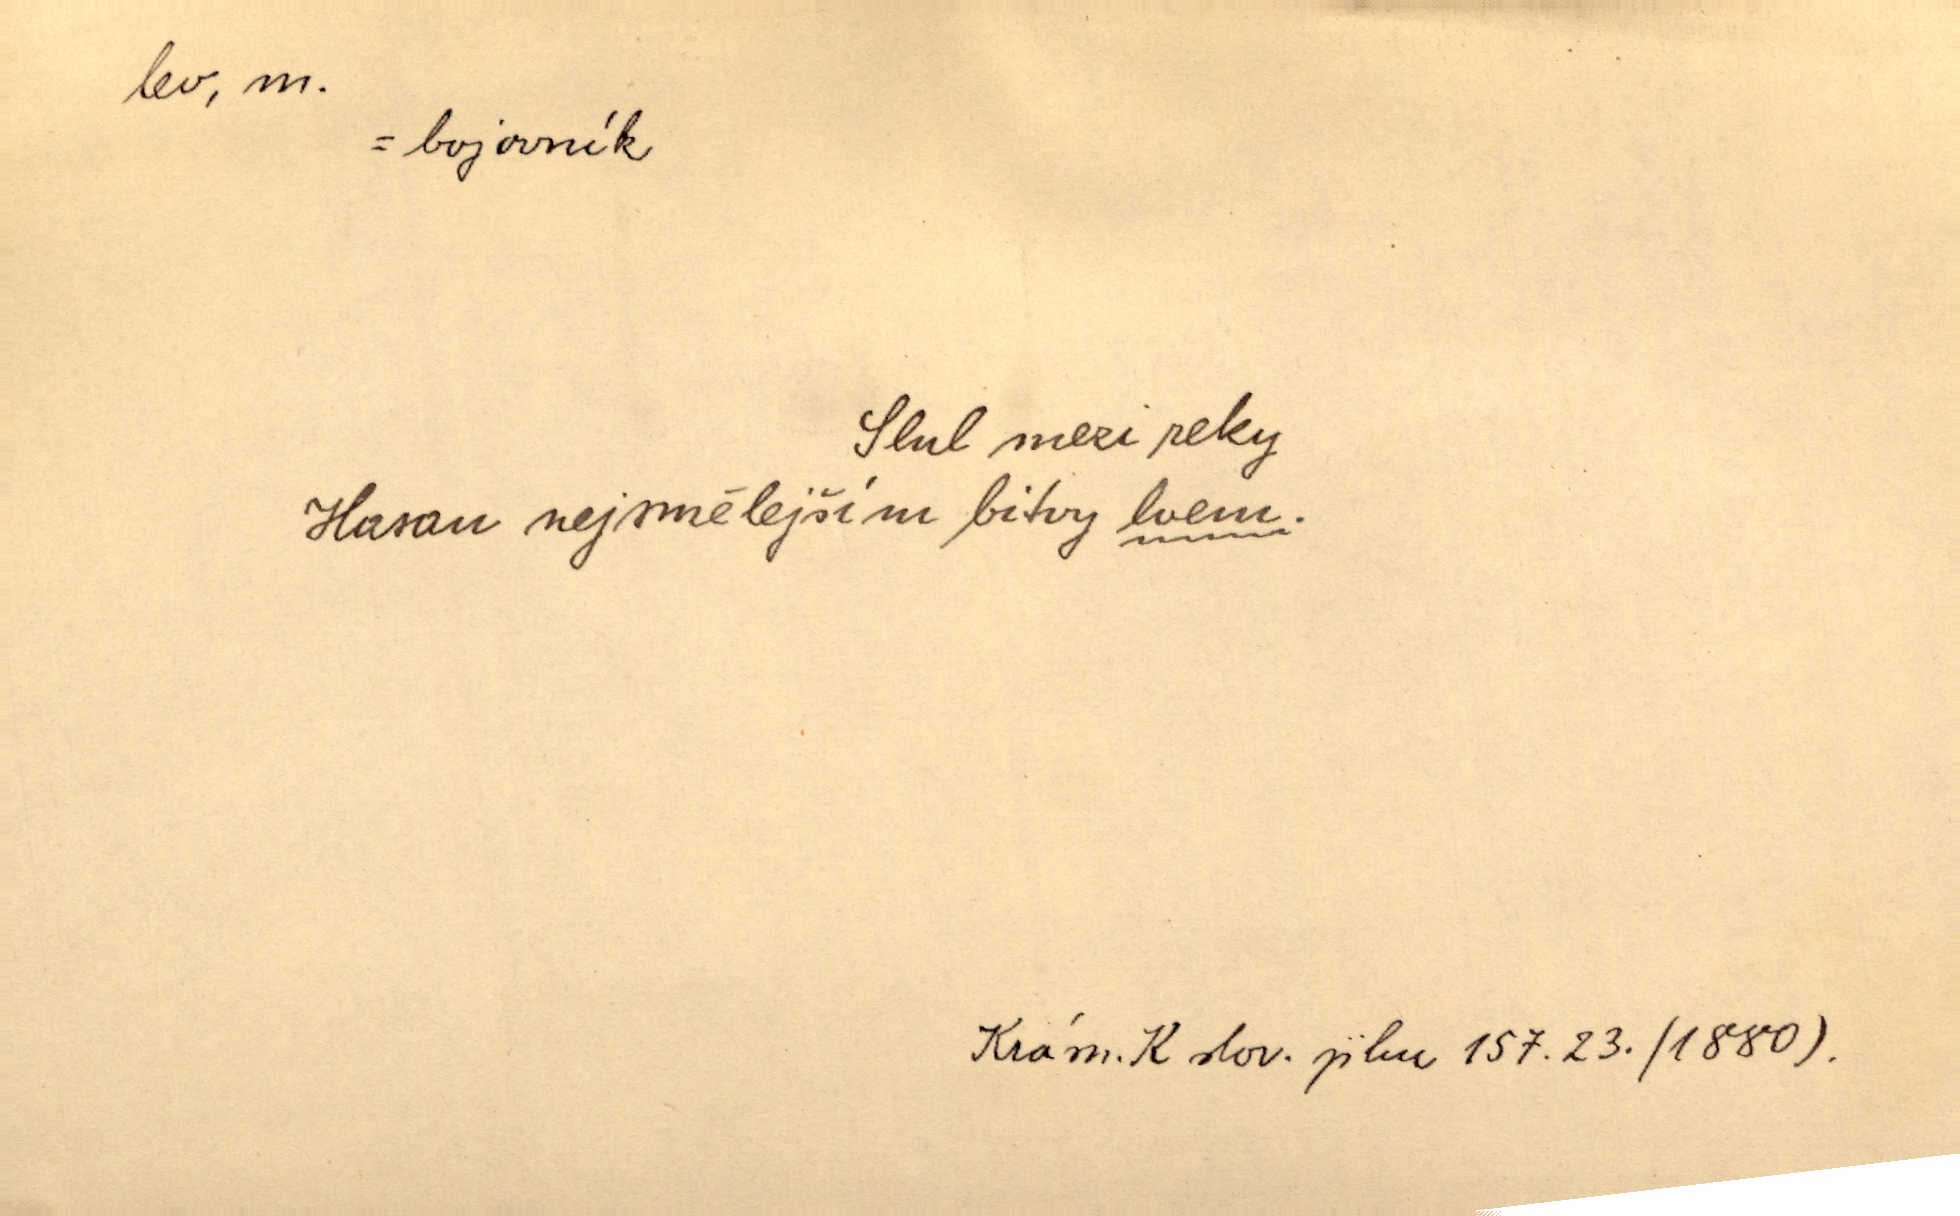 lev, m.
= bojovník
Slul mezi reky
Hasan nejsmělejším bitvy lvem.
Krám. K slov. jihu 157. 23. (1880).